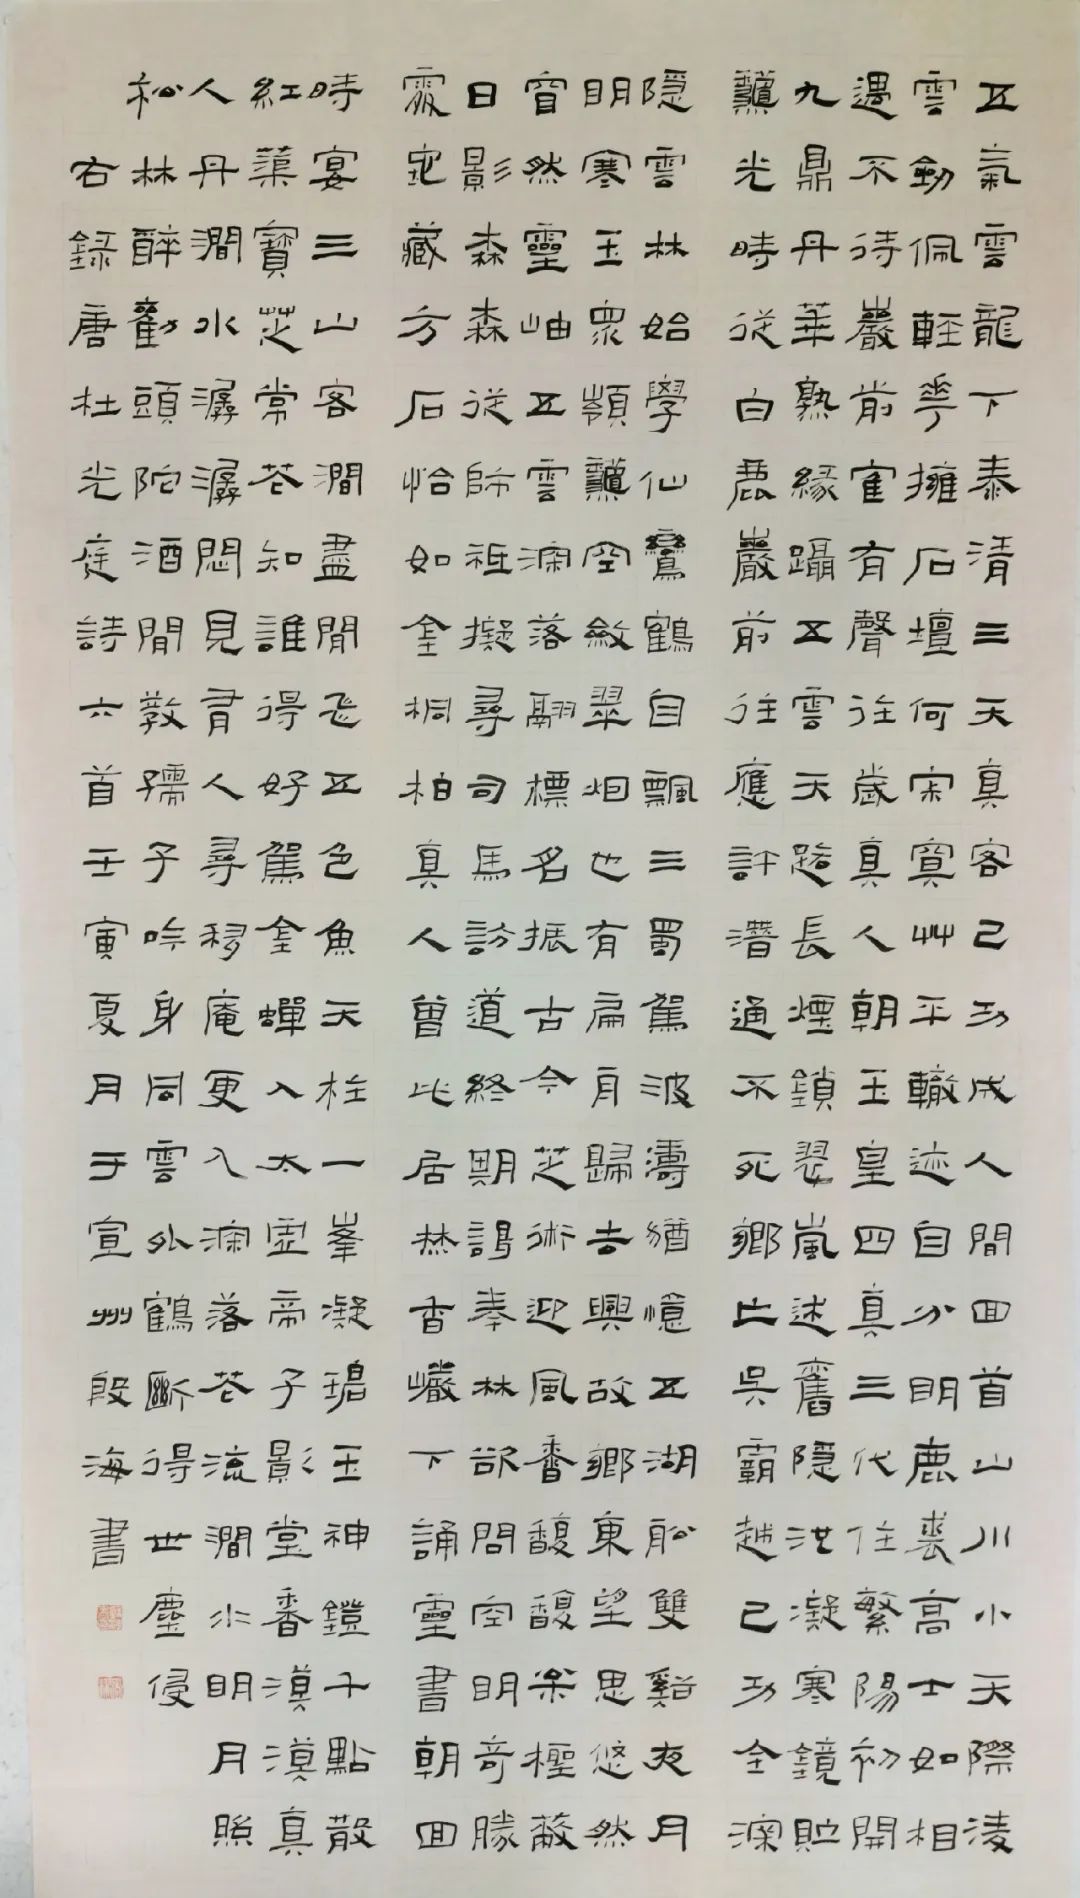 五氣雲龍下泰清三天真客已功成人間回首山川小天際淩
雲劍佩輕花擁石壇何寂寞艸平轍迹自分明鹿裘高士如相
遇不待巖前寉有聲往歲真人朝玉皇四真三代住繁陽初開
九鼎丹華熟緣躡五雲天路長煙鎖翠嵐迷舊隱洪凝寒鏡貯
秋光時從白鹿巖前往應許潛通不死鄉亡吳霸越已功全深
隱雲林始學仙鸞鶴自飄三蜀駕波濤猶憶五湖船雙谿夜月
明寒玉眾嶺秋空斂翠烟也有扁舟歸去興故鄉東望思悠然
窅然靈岫五雲深落翮標名振古今芝術迎風香馥馥松檉蔽
日影森森從師祗擬尋司馬訪道終期謁奉林欲問空明奇勝
處寔藏方石恰如金桐柏真人曾此居焚香巘下誦靈書朝回
時宴三山客澗盡閒飛五色魚天柱一峯凝碧玉神鐙千點散
紅蕖寶芝常花知誰得好駕金蟬入太虛帝子影堂香漠漠真
人丹澗水潺潺悶見有人尋移庵更入深落花流澗水明月照
松林醉勸頭陀酒閒教孺子吟身同雲外鶴斷得世塵侵
右錄唐杜光庭詩六首壬寅夏月于宣州段海書